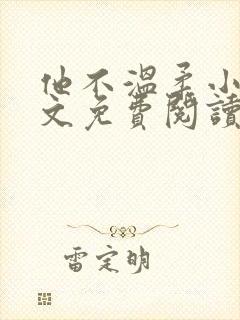 他不溫柔小
文免費閱讀
雷定明